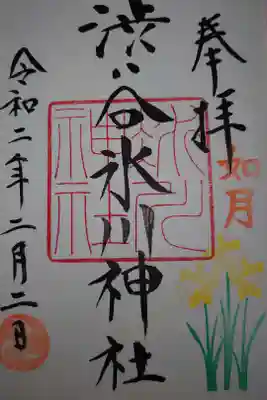 奉拝
如月
渋谷氷川神社
令和二年二月二日